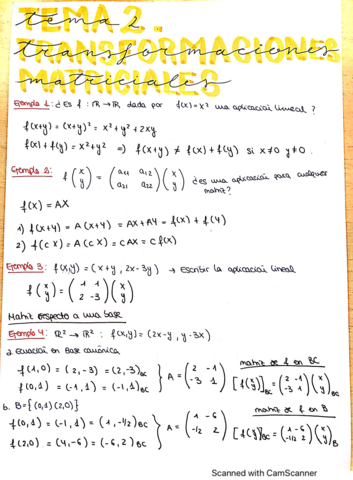 TEMA 2.
TRANSFORMACIONES
MATRICIALES
Ejemplo 1: ¿Es f: ℝ → ℝ dada por f(x) = x² una aplicación lineal?
f(x+y) = (x+y)² = x² + y² + 2xy
f(x) + f(y) = x² + y² ⇒ f(x+y) ≠ f(x) + f(y) si x≠0 y≠0.
Ejemplo 2: f(x y) = (a₁₁ a₁₂ a₂₁ a₂₂)(x y) ¿es una aplicación para cualquier
matriz?
f(x) = AX
1) f(x+y) = A(x+y) = AX + AY = f(x) + f(y)
2) f(cx) = A(cx) = CAX = cf(x)
Ejemplo 3: f(x,y) = (x+y, 2x-3y) → Escribir la aplicación lineal
f(x y) = (1 1 2 -3)(x y)
Matriz respecto a una base
Ejemplo 4: ℝ² → ℝ²: f(x,y) = (2x-y, y-3x)
a. Ecuación en Base canónica
matriz de f en BC
f(1,0) = (2,-3) = (2,-3)BC
f(0,1) = (-1,1) = (-1,1)BC } A = (2 -1 -3 1) [f(x y)]BC = (2 -1 -3 1)(x y)BC
b. B = {(0,1)(2,0)}
matriz de f en B
f(0,1) = (-1,1) = (1,-1/2)BC
f(2,0) = (4,-6) = (-6,2)BC } A = (1 -6 -1/2 2) [f(x y)]BC = (1 -6 -1/2 2)(x y)B
Scanned with CamScanner